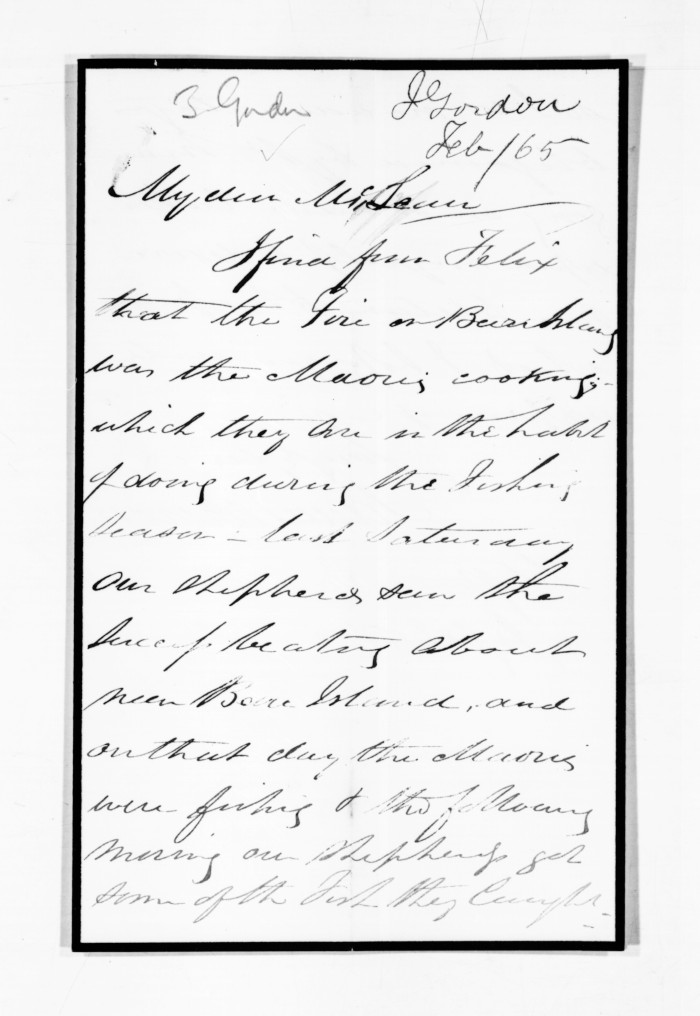 3 Gordon
J Gordon
Feb/65
My dear McLean
I find from Felix
that the Fire on Bare Island
was the Maoris cooking,-
which they are in the habit
of doing during the Fishing
season - last Saturday
our shepherds saw the
beating about
near Bare Island, and
on that day the Maoris
were fishing & the following
morning our shepherds got
some of the Fish they Caught -